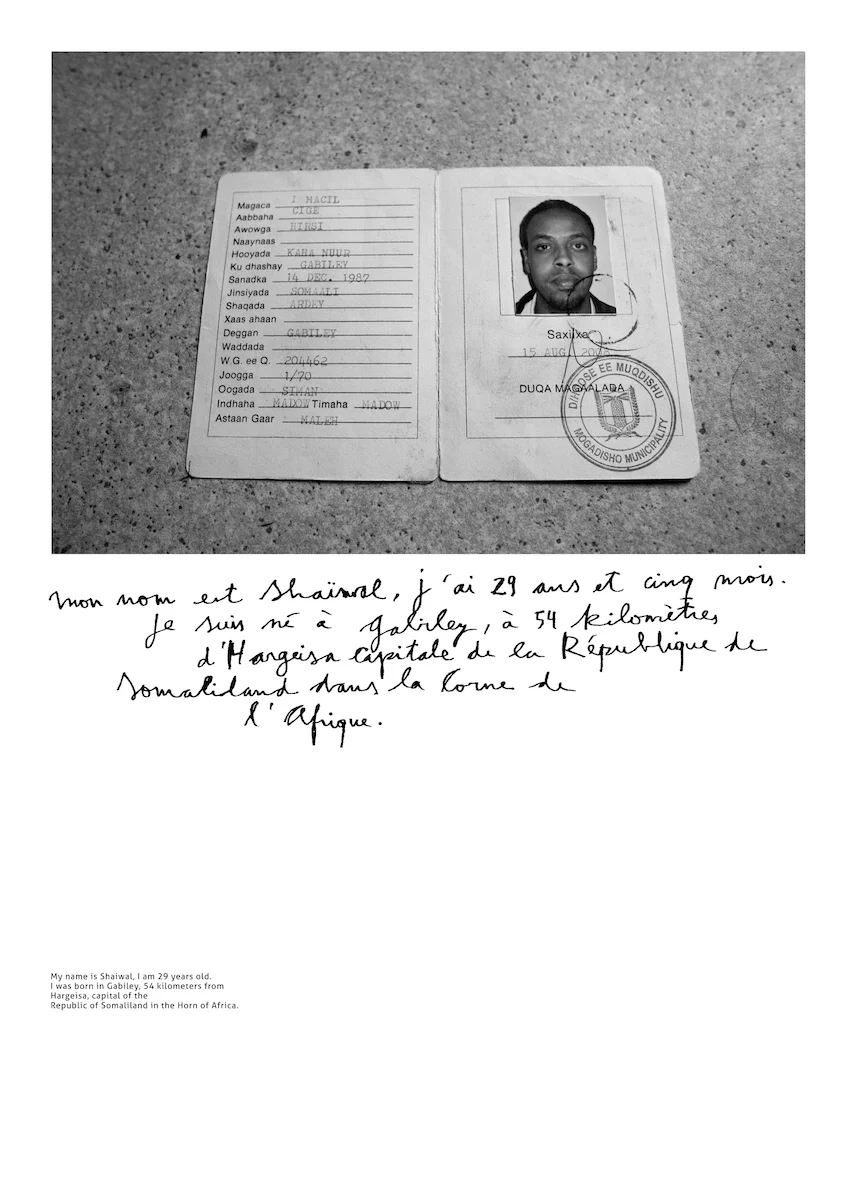 Magaca I MACIL
Aabbaha CIGE
Awowga HIRSI
Naaynaas
Hooyada KAHA NUUR
Ku dhashay GABILEY
Sanadka 14 DEC. 1987
Jinsiyada SOMAALI
Shaqada ARDEY
Xaas ahaan
Deggan GABILEY
Waddada
W.G. ee Q. 204462
Joogga 1/70
Oogada SIMAN
Indhaha MADOW Timaha MADOW
Astaan Gaar MALEH
Saxiixa
15 AUG.
DUQA MAGAALADA
EE MUQDISHU
MOGADISHO MUNICIPALITY
mon nom est Shaïwal, j'ai 29 ans et cinq mois.
Je suis né à Gabiley, à 54 kilomètres
d'Hargeisa capitale de la République de
Somaliland dans la Corne de
l'Afrique.
My name is Shaiwal, I am 29 years old.
I was born in Gabiley, 54 kilometers from
Hargeisa, capital of the
Republic of Somaliland in the Horn of Africa.